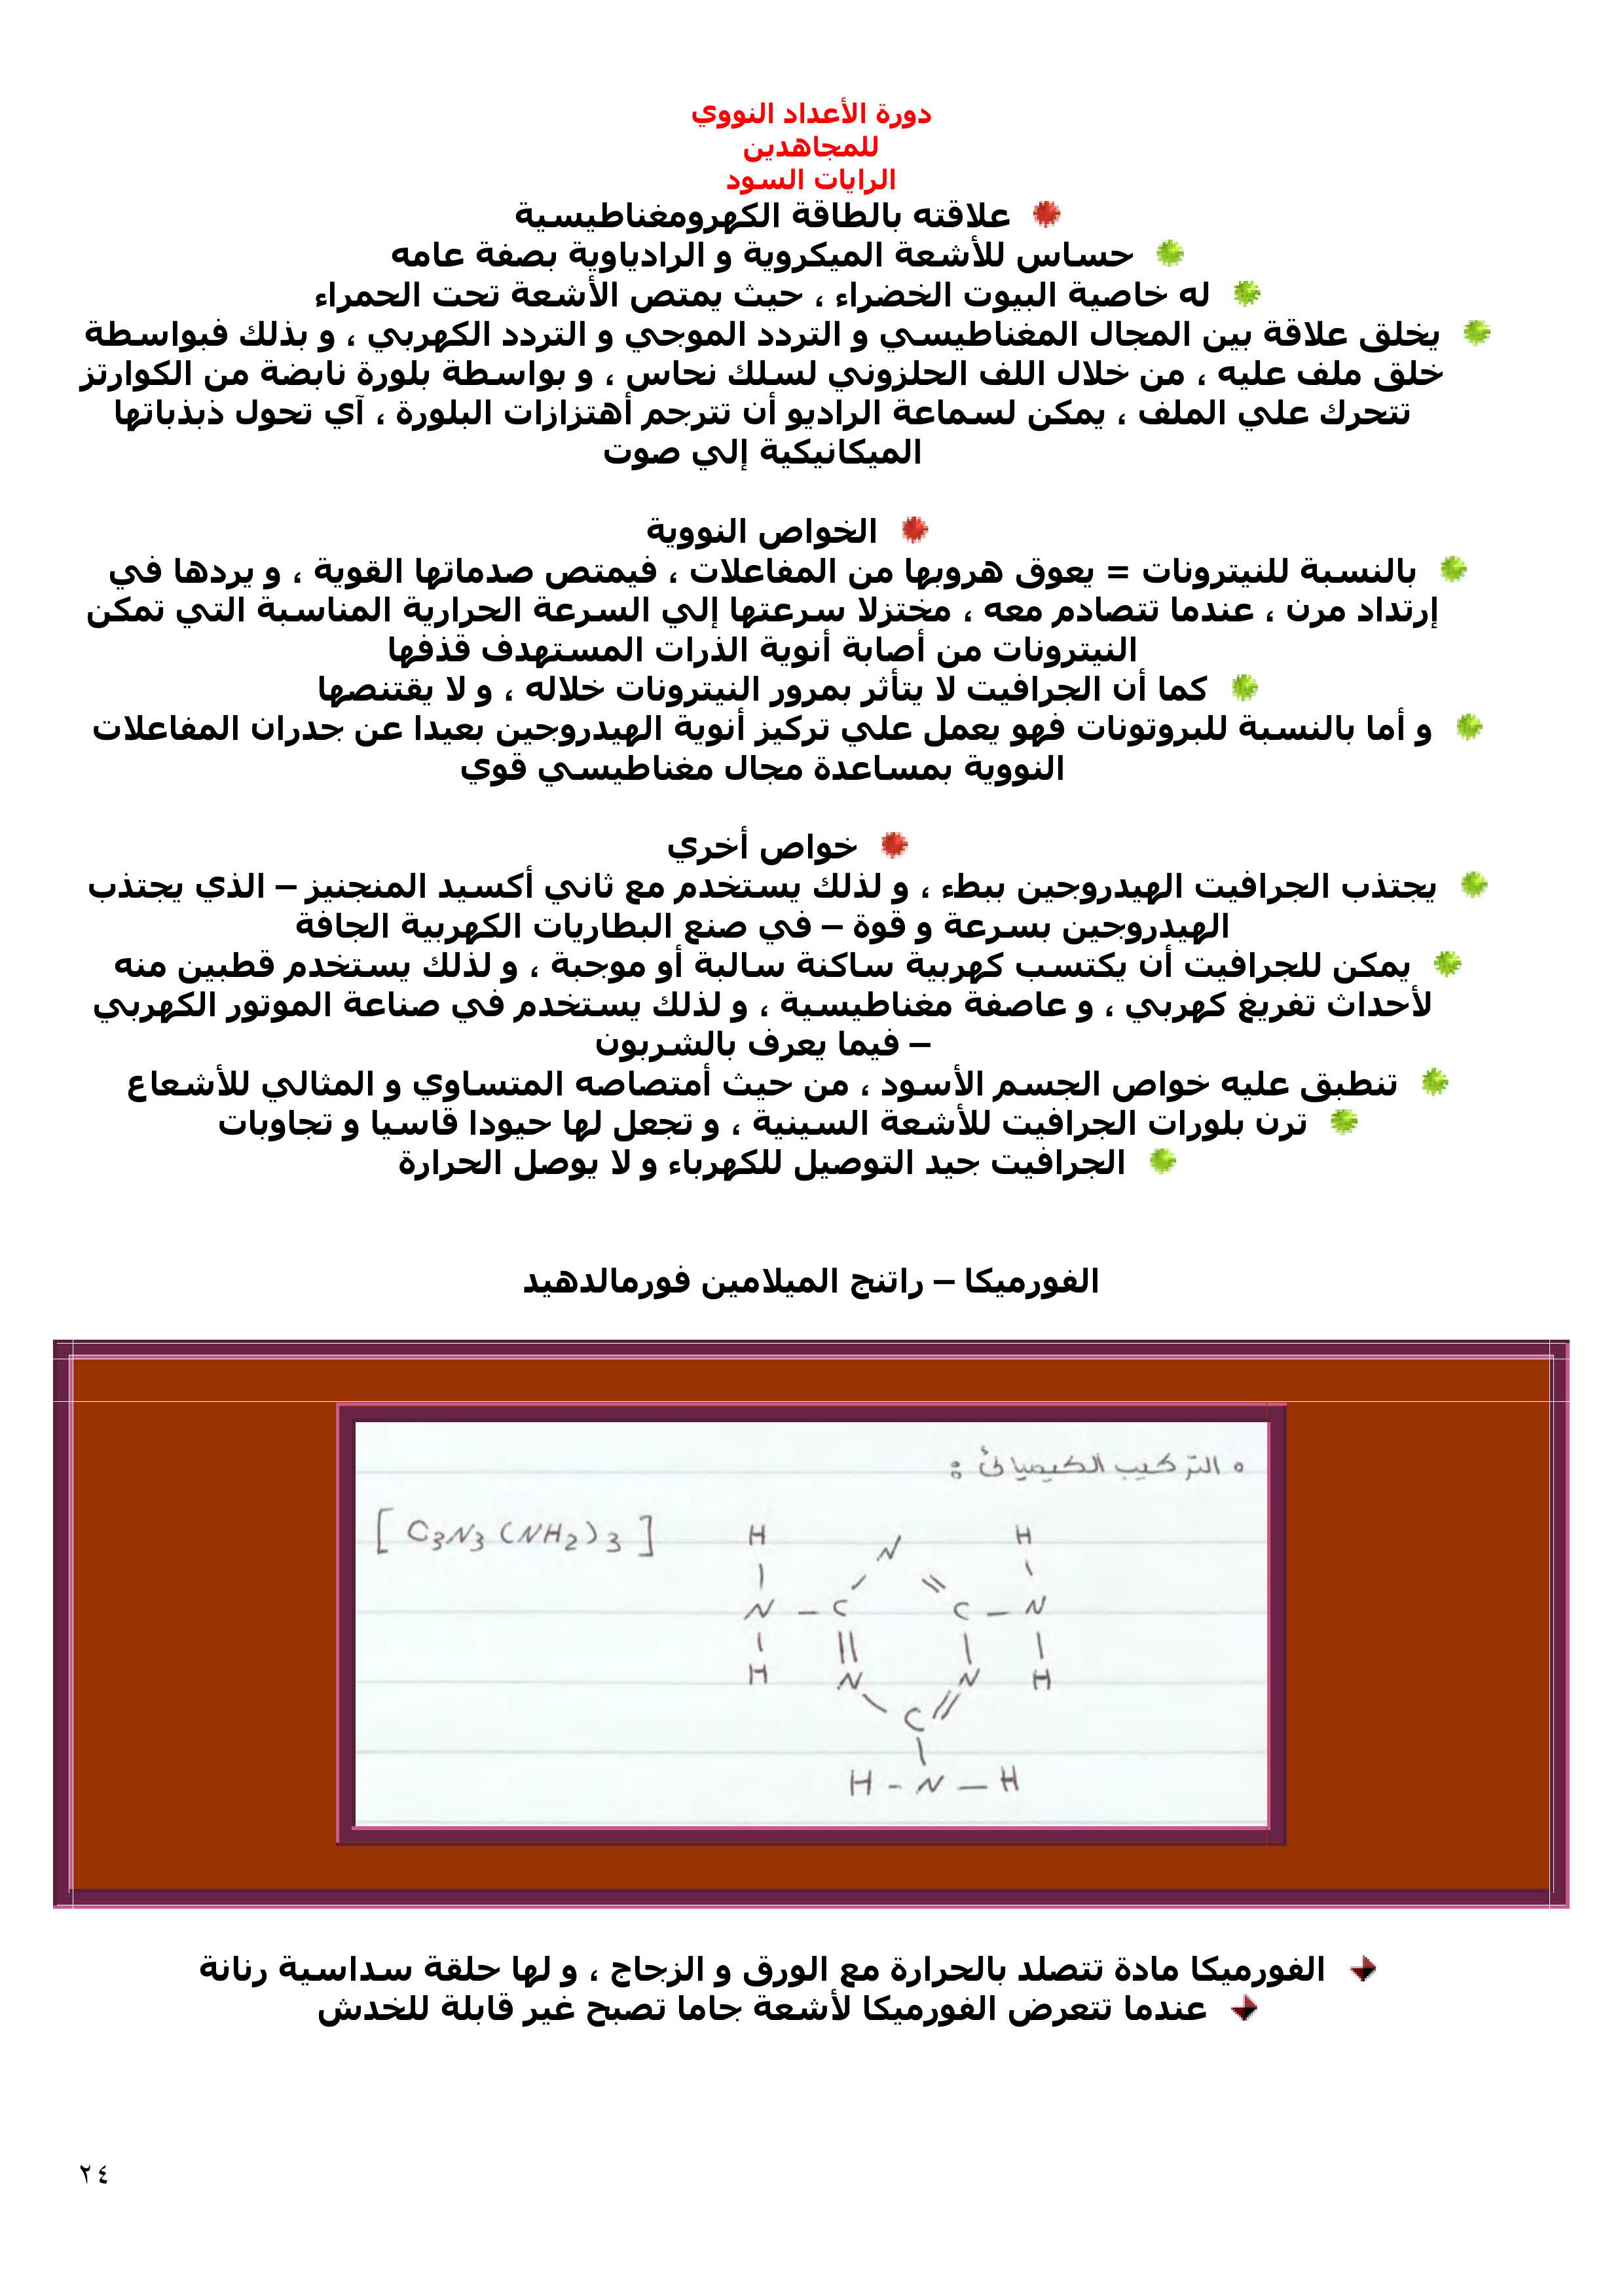 دورة الأعداد النووي
للمجاهدين
الرايات السود
علاقته بالطاقة الكهرومغناطيسية
حساس للأشعة الميكروية و الرادياوية بصفة عامه
له خاصية البيوت الخضراء ، حيث يمتص الأشعة تحت الحمراء
يخلق علاقة بين المجال المغناطيسي و التردد الموجي و التردد الكهربي ، و بذلك فبواسطة
خلق ملف عليه ، من خلال اللف الحلزوني لسلك نحاس ، و بواسطة بلورة نابضة من الكوارتز
تتحرك علي الملف ، يمكن لسماعة الراديو أن تترجم أهتزازات البلورة ، آي تحول ذبذباتها
الميكانيكية إلي صوت
الخواص النووية
بالنسبة للنيترونات = يعوق هروبها من المفاعلات ، فيمتص صدماتها القوية ، و يردها في
إرتداد مرن ، عندما تتصادم معه ، مختزلا سرعتها إلي السرعة الحرارية المناسبة التي تمكن
النيترونات من أصابة أنوية الذرات المستهدف قذفها
كما أن الجرافيت لا يتأثر بمرور النيترونات خلاله ، و لا يقتنصها
و أما بالنسبة للبروتونات فهو يعمل علي تركيز أنوية الهيدروجين بعيدا عن جدران المفاعلات
النووية بمساعدة مجال مغناطيسي قوي
خواص أخري
يجتذب الجرافيت الهيدروجين ببطء ، و لذلك يستخدم مع ثاني أكسيد المنجنيز – الذي يجتذب
الهيدروجين بسرعة و قوة – في صنع البطاريات الكهربية الجافة
يمكن للجرافيت أن يكتسب كهربية ساكنة سالبة أو موجبة ، و لذلك يستخدم قطبين منه
لأحداث تفريغ كهربي ، و عاصفة مغناطيسية ، و لذلك يستخدم في صناعة الموتور الكهربي
– فيما يعرف بالشربون
تنطبق عليه خواص الجسم الأسود ، من حيث أمتصاصه المتساوي و المثالي للأشعاع
ترن بلورات الجرافيت للأشعة السينية ، و تجعل لها حيودا قاسيا و تجاوبات
الجرافيت جيد التوصيل للكهرباء و لا يوصل الحرارة
الفورميكا – راتنج الميلامين فورمالدهيد
التركيب الكيميائى :
[ C3N3 (NH2)3 ]
H N H
N – C C – N
H N N H
C
H – N – H
الفورميكا مادة تتصلد بالحرارة مع الورق و الزجاج ، و لها حلقة سداسية رنانة
عندما تتعرض الفورميكا لأشعة جاما تصبح غير قابلة للخدش
٢٤